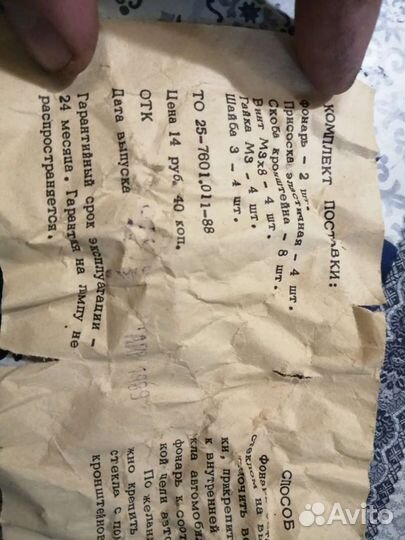 КОМПЛЕКТ ПОСТАВКИ:
Фонарь - 2 шт.
Присоска эластичная - 4 шт.
Скоба кронштейна - 8 шт.
Винт М3х8 - 4 шт.
Гайка М3 - 4 шт.
Шайба 3 - 4 шт.
ТО 25-7601.011-88
Цена 14 руб. 40 коп.
ОТК
Дата выпуска
1989
Гарантийный срок эксплуатации -
24 месяца. Гарантия на лампу не
распространяется.
СПОСОБ
Фонарь
стеклом на вы
ключить в
ки, прикрепит
к внутренней
кла автомобил
фонарь к сот
кой цепи авто
По желан
жно крепить
стекла с по
кронштейнов
Avito